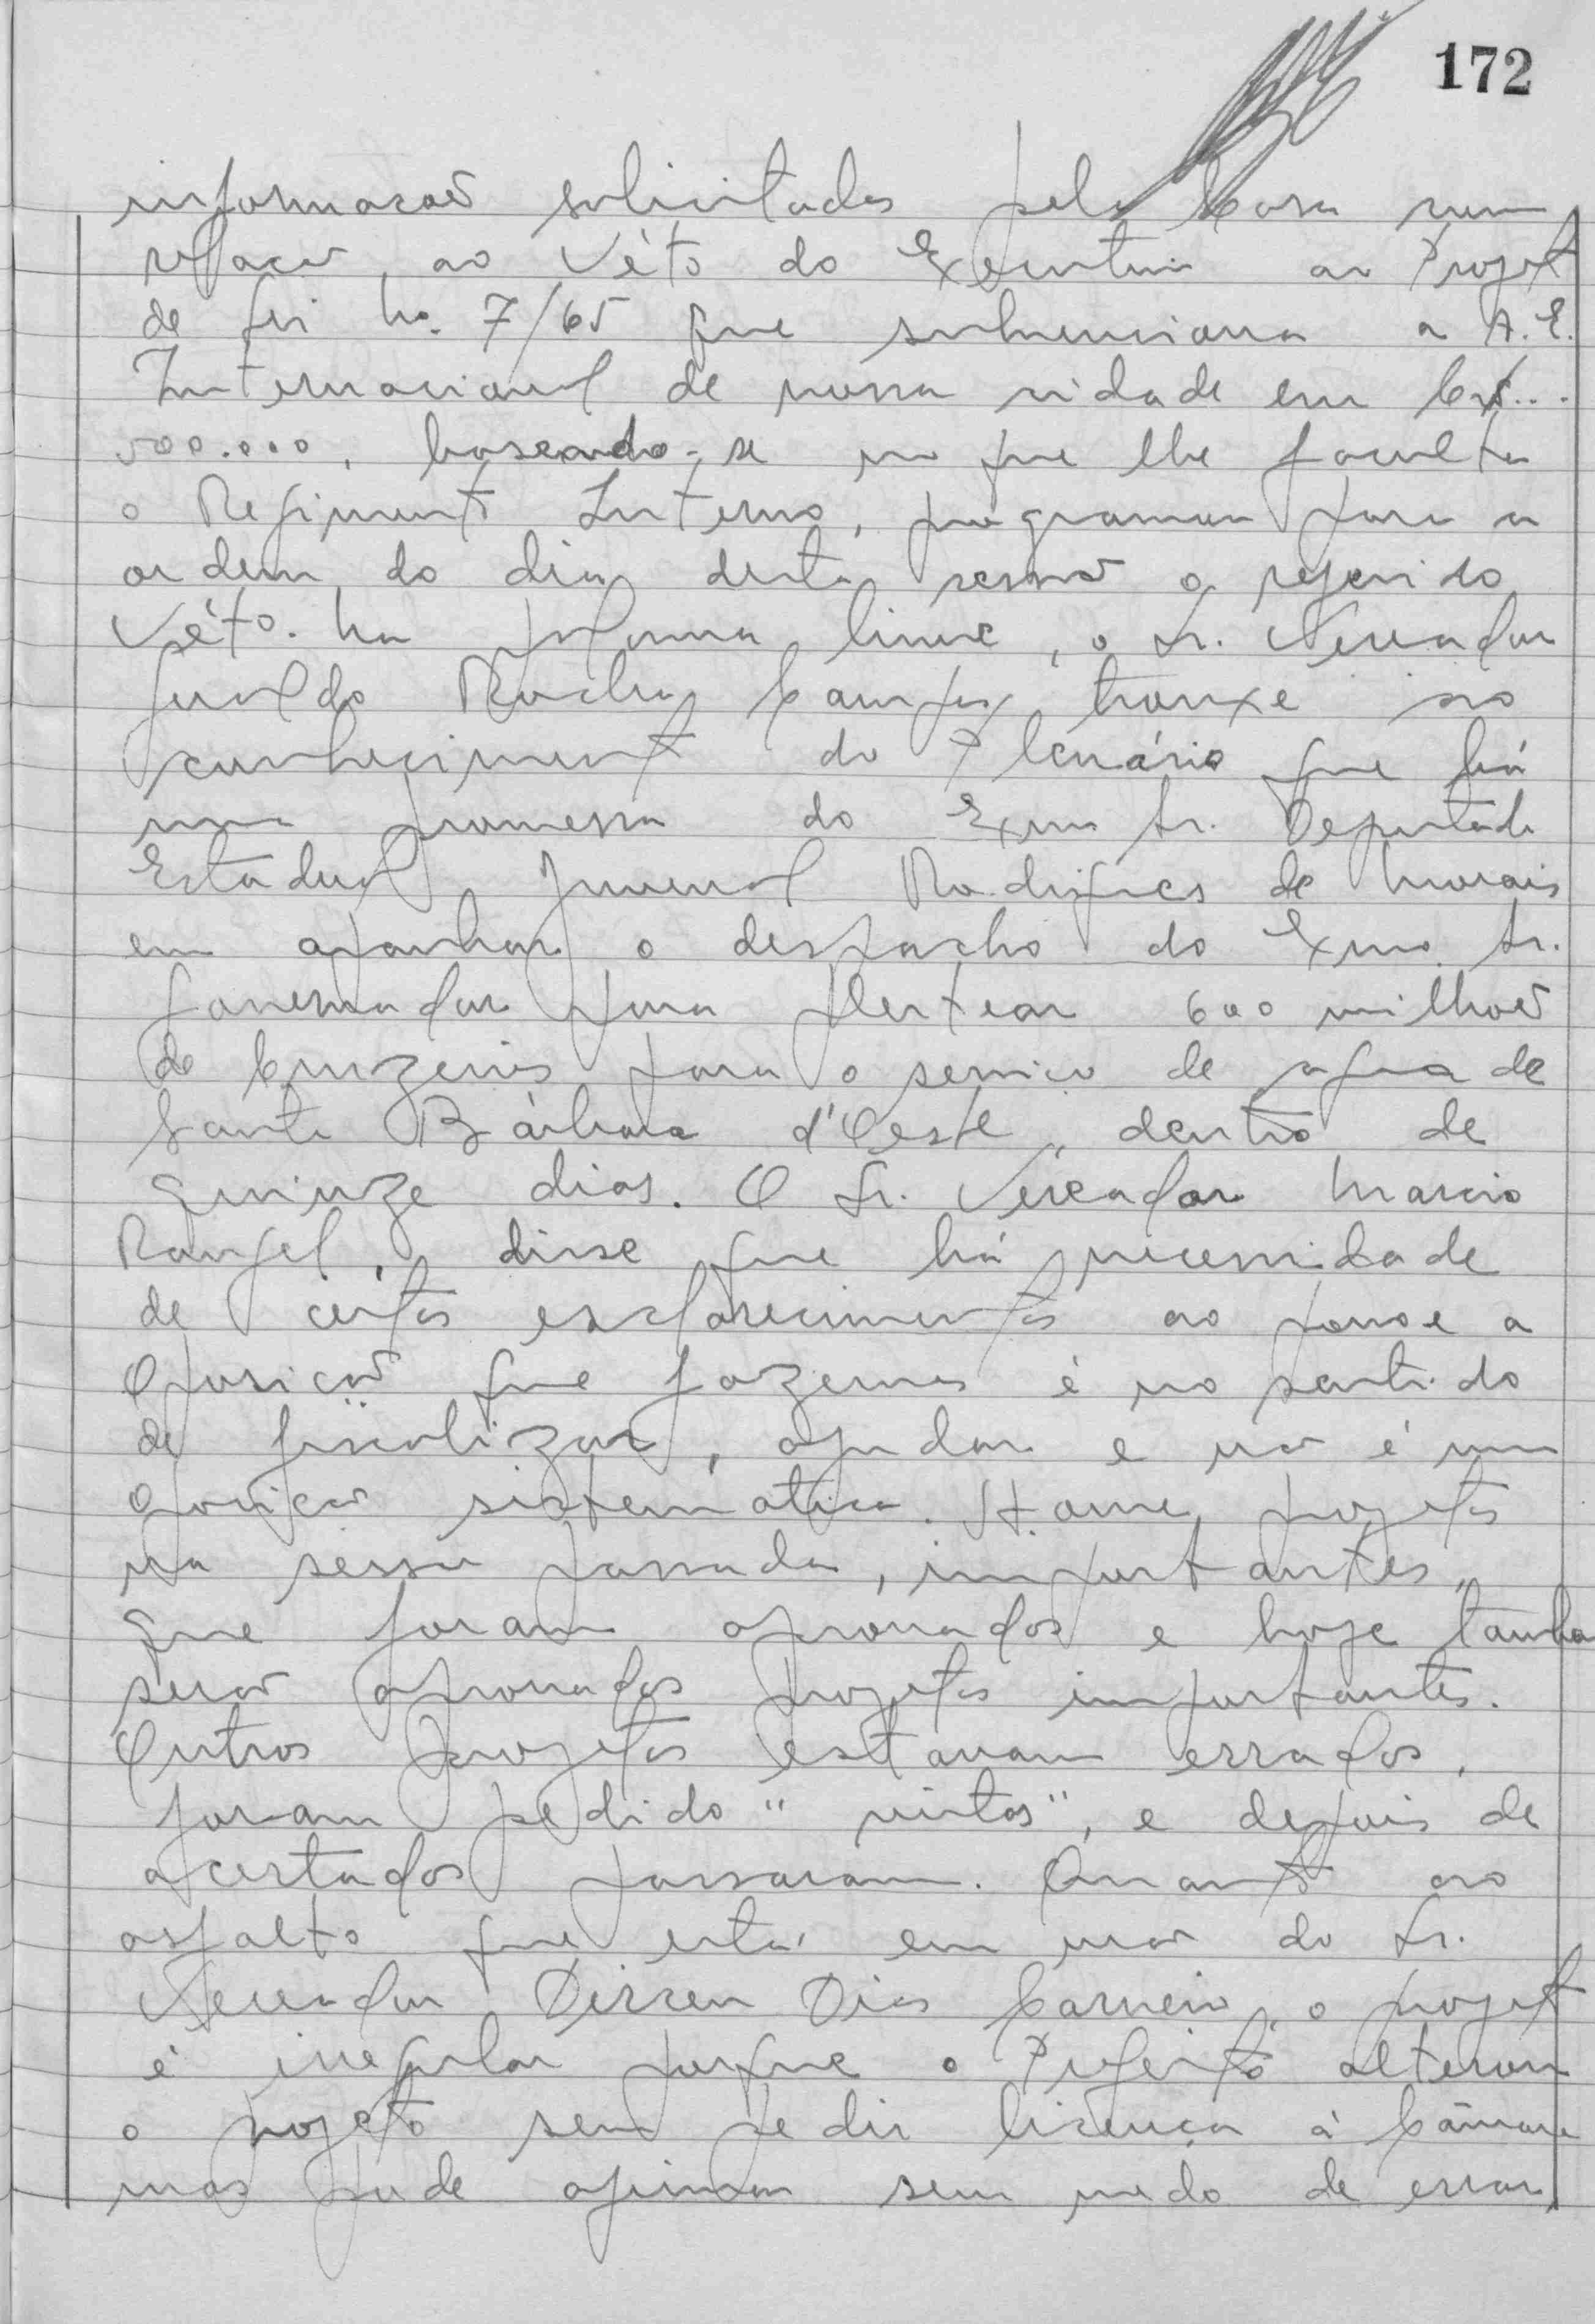 172
informacoẽs solicitadas pela Casa num
relacao, ao Véto do Executivo ao Projeto
de Lei no. 7/65 que subvenciona a A. E.
Internacional de nossa cidade em Cr$...
500.000, baseando-se no que lhe faculta
o Regimento Interno, programou para a
ordem do dia desta sessão o referido
Véto. Na Palavra livre, o Sr. Vereador
Geraldo Rocha Campos, trouxe ao
conhecimento do Plenário que há
uma promessa do Exmo Sr. Deputado
Estadual Juvenal Rodrigues de Morais
em apanhar o despacho do Exmo. Sr.
Governador para pleitear 600 milhoẽs
de Cruzeiros para o servico de agua de
Santa Bárbara d'Oeste, dentro de
quinze dias. O Sr. Vereador Marcio
Rangel, disse que há necessidade
de certos esclarecimentos ao povo e a
Oposicão que fazemos é no sentido
de fiscalizar, ajudar e não é uma
oposicão sistematica. Houve projetos
na sessão passada, importantes,
que foram aprovados e hoje tambem
serão aprovados projetos importantes.
Outros projetos estavam errados,
foram pedido "vistas", e depois de
acertados passaram. Quanto ao
asfalto que está em mão do Sr.
Vereador Dirceu Dias Carneiro, o projeto
é irregular porque o Prefeito alterou
o projeto sem pedir licença á Câmara
mas pode afirmar sem medo de errar,